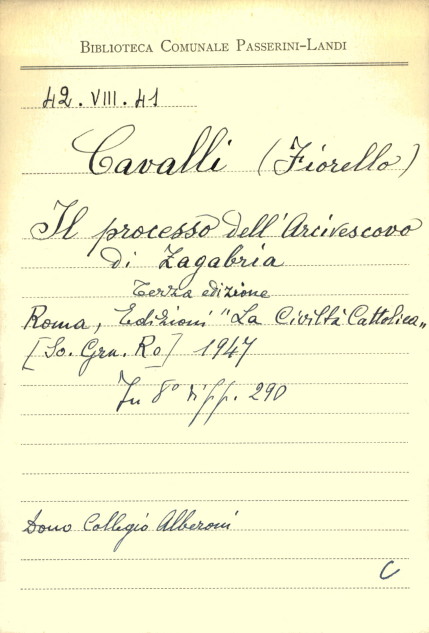 BIBLIOTECA COMUNALE PASSERINI-LANDI
42. VIII. 41
Cavalli (Fiorello)
Il processo dell'Arcivescovo
di Zagabria
Terza edizione
Roma, Edizioni "La Civiltà Cattolica„
[So. Gra. Ro] 1947
In 8° di pp. 290
Dono Collegio Alberoni
C